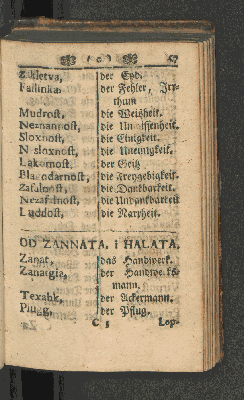 Zakletva, der Eyd.
Fallinka. der Fehler, Irr-
thum
Mudrost, die Weißheit.
Neznannost, die Unwissenheit.
Sloxnost, die Einigkeit.
N sloxnost, die Uneinigkeit.
Lakomost, der Geitz
Blagodarnost, die Freygebigkeit.
Zafalnost, die Dankbarkeit.
Nezafalnost, die Undankbarkeit
Luddost, die Narrheit.
OD ZANNATA, I HALATA.
Zanat, das Handwerk.
Zanatgia, der Handwerks-
mann.
Texahk, der Ackermann.
Plug, der Pflug.
C 3 Lop-